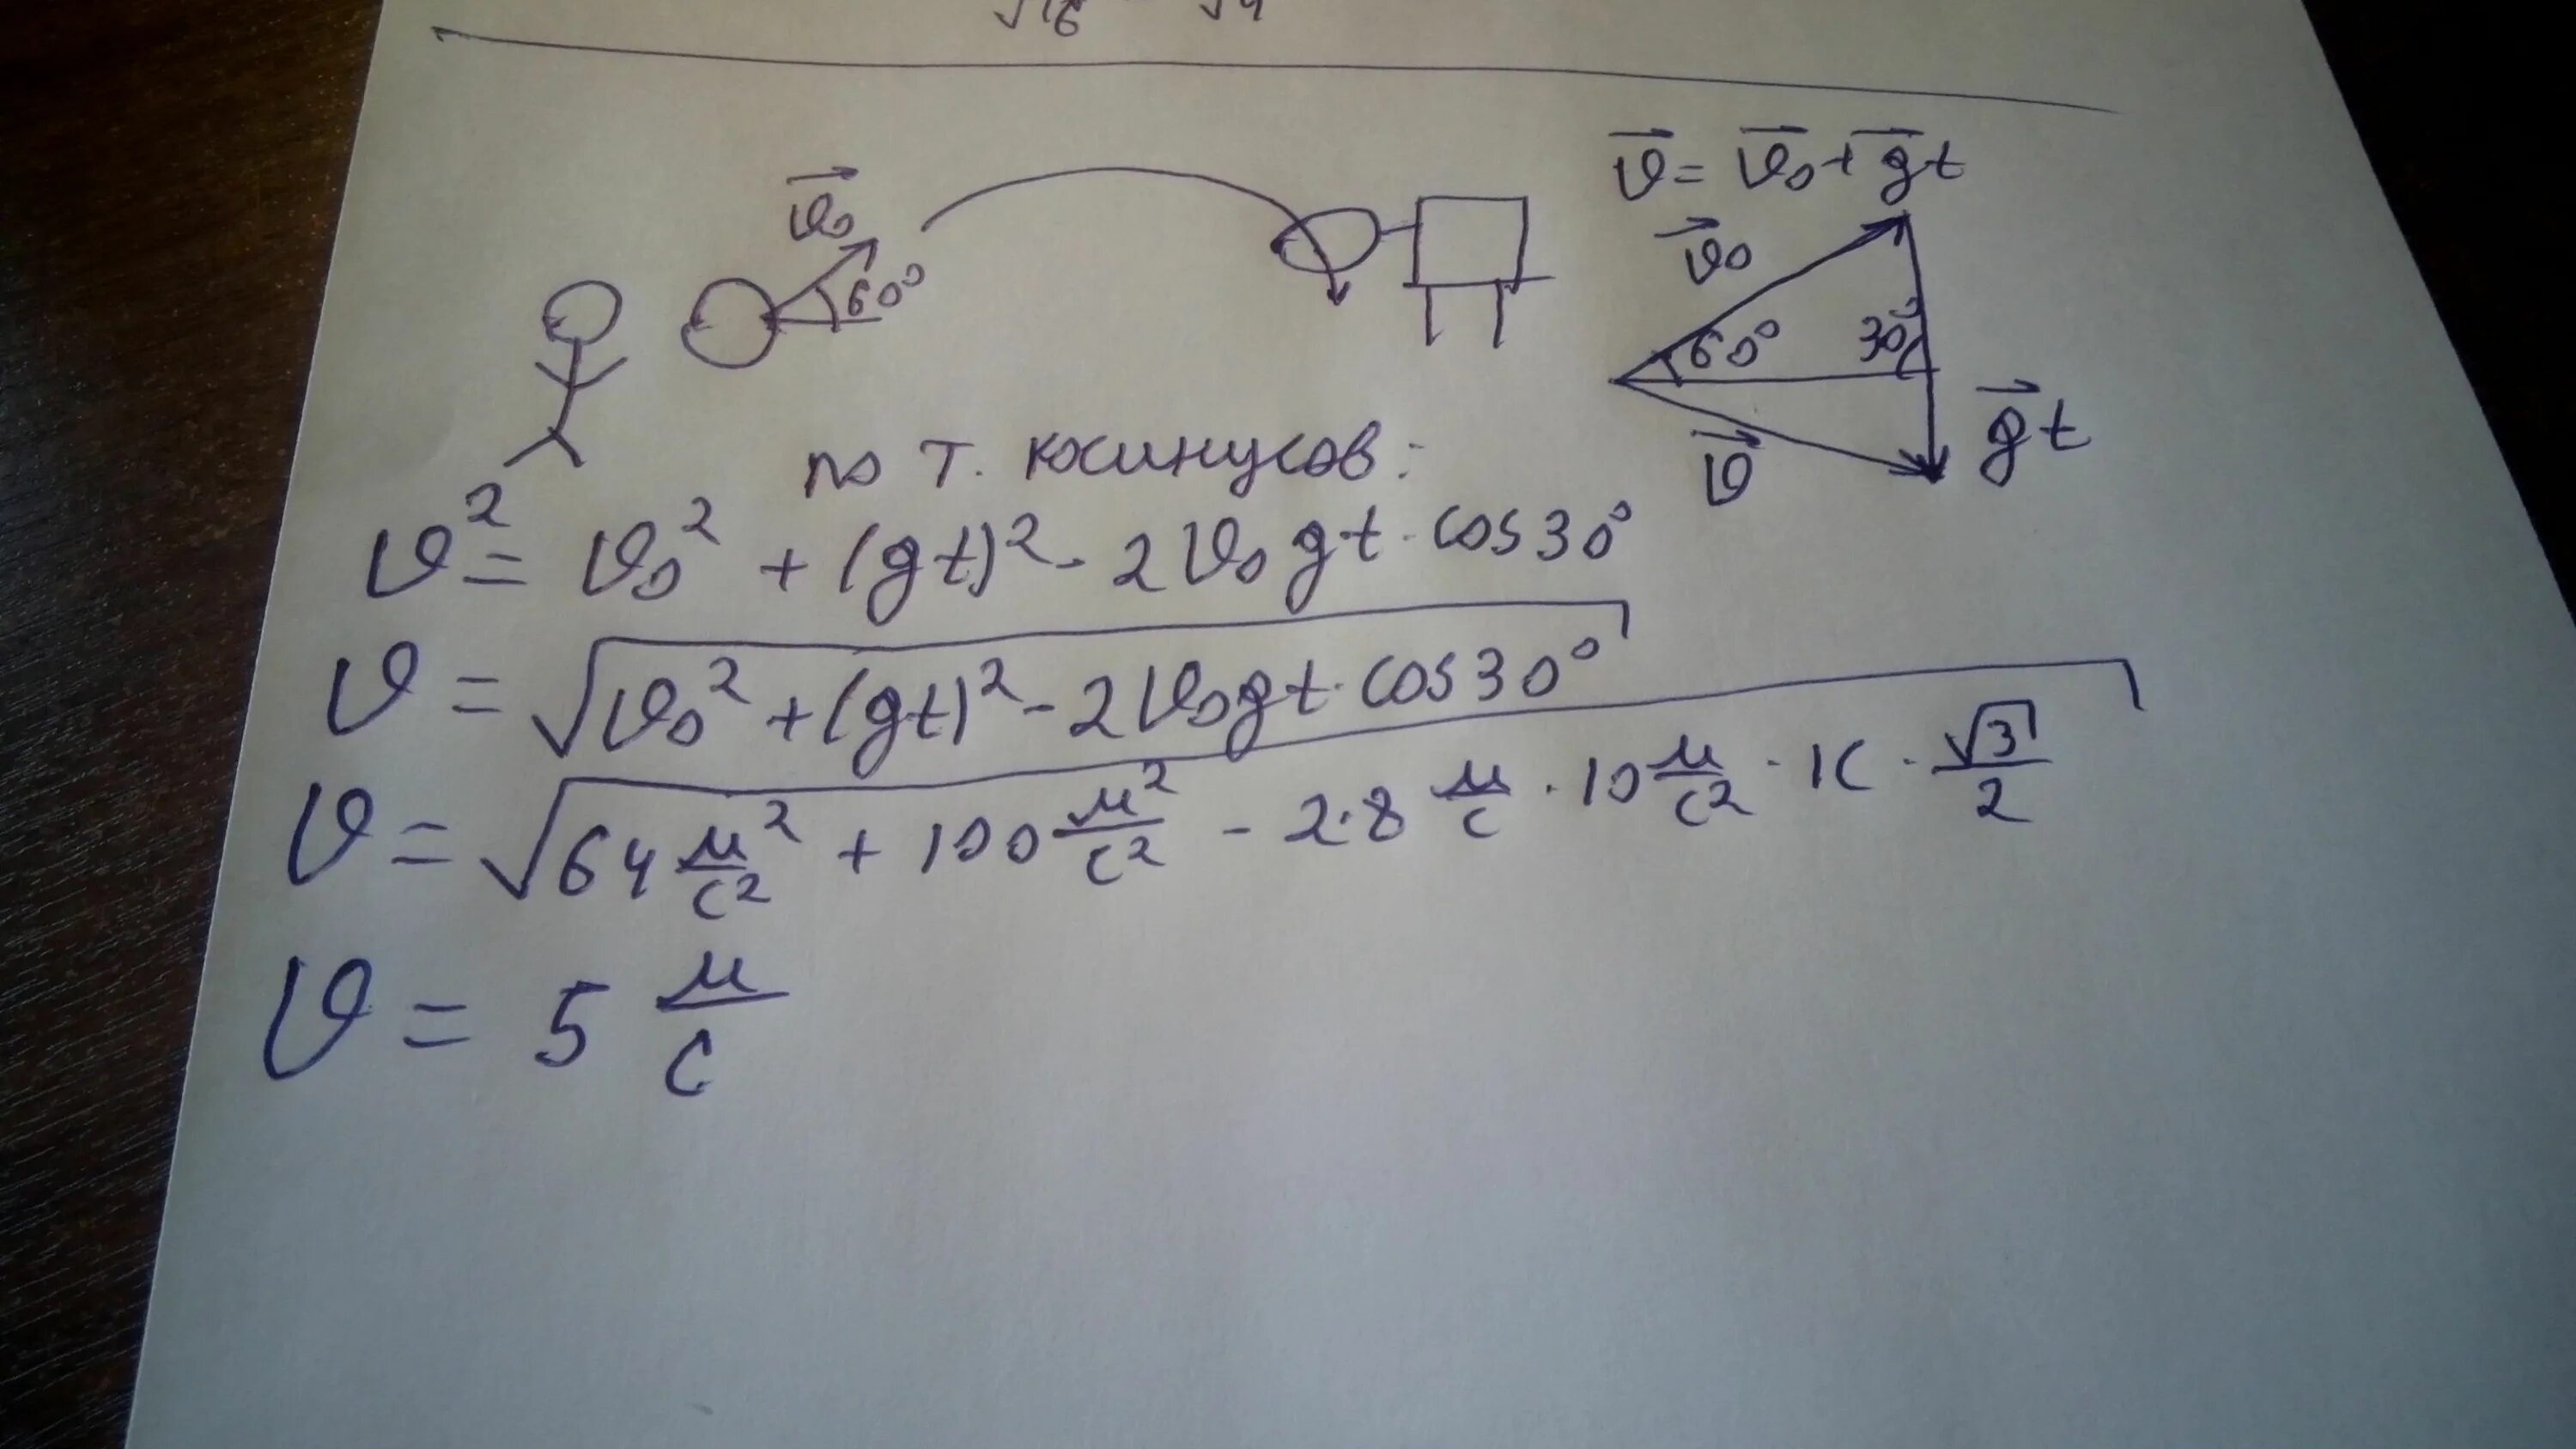 √16 √4
v⃗₀
60°
v⃗ = v⃗₀ + g⃗t
v⃗₀
60°
30°
g⃗t
v⃗
по т. косинусов:
v² = v₀² + (gt)² - 2v₀gt · cos30°
v = √(v₀² + (gt)² - 2v₀gt · cos30°)
v = √(64 м²/с² + 100 м²/с² - 2·8 м/с · 10 м/с² · 1с · √3/2)
v = 5 м/с